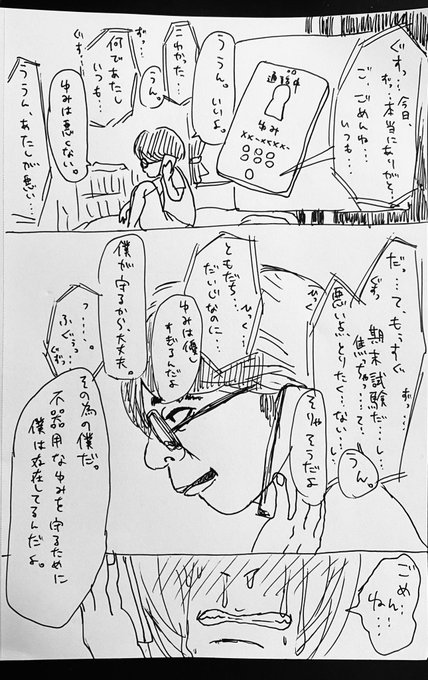 今日、
ぐすっ…ずっ…本当にありがと…
ご、ごめんね…
いつも…
通話中
ゆみ
うん。いいよ。
ずっ…
こわかった…
うん。
何であたし
いつも…
ぐすっ…
ゆみは悪くない。
ううん、あたしが悪い…
だっ…てもうすぐ
ぐすっ
ずっ…
期末試験だ…し…
焦っちゃ……て…
悪い点とりたく…ない…し…
うん。
そりゃそうだよ
ひっく
ともだち…
ひっく…
だいじなのに…
ゆみは優し
すぎるんだよ
僕が守るから大丈夫。
っ……
ふぐぅっ
ぐすっ
その為の僕だ。
不器用なゆみを守るために
僕は存在してるんだよ。
ごめん…
ねぇ…